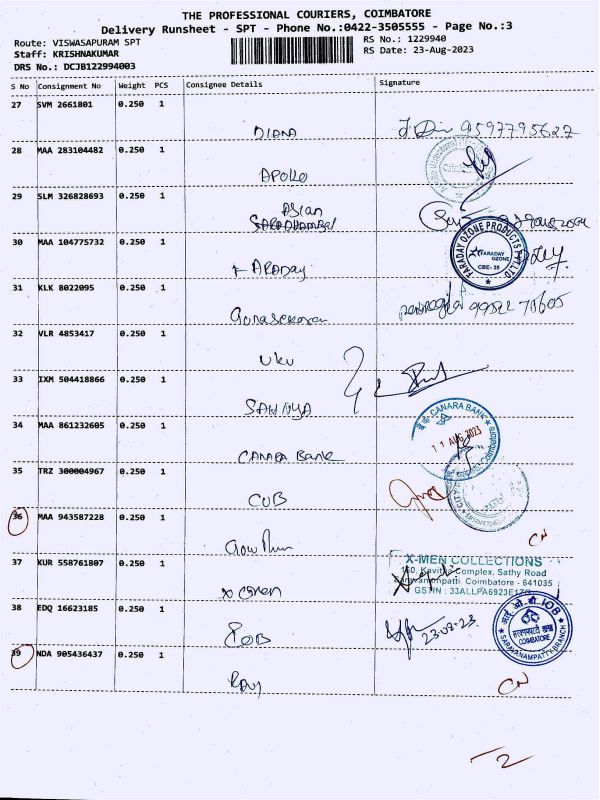 THE PROFESSIONAL COURIERS, COIMBATORE
Delivery Runsheet - SPT - Phone No.:0422-3505555 - Page No.:3
Route: VISWASAPURAM SPT
RS No.: 1229940
Staff: KRISHNAKUMAR
RS Date: 23-Aug-2023
DRS No.: DCJB122994003
S No Consignment No Weight PCS Consignee Details Signature
27 SVM 2661801 0.250 1
DIANA
28 MAA 283104482 0.250 1
APollo
29 SLM 326828693 0.250 1
Asian
30 MAA 104775732 0.250 1
FARADAY OZONE PRODUCTS PVT LTD
FARADAY OZONE
CBE-35
31 KLK 8022095 0.250 1
Gunasekaran
32 VLR 4853417 0.250 1
33 IXM 504418866 0.250 1
34 MAA 861232605 0.250 1
CANARA BANK
11 AUG 2023
CANARA Bank
35 TRZ 300004967 0.250 1
CUB
36 MAA 943587228 0.250 1
CN
37 KUR 558761807 0.250 1
X-MEN COLLECTIONS
160, Kavitha Complex, Sathy Road
Saravanampatti, Coimbatore - 641035
38 EDQ 16623185 0.250 1
IOB
23-08-23
आई.ओ.बी IOB
COIMBATORE
SARAVANAMPATTY-BRANCH
39 NDA 905436437 0.250 1
CN
2